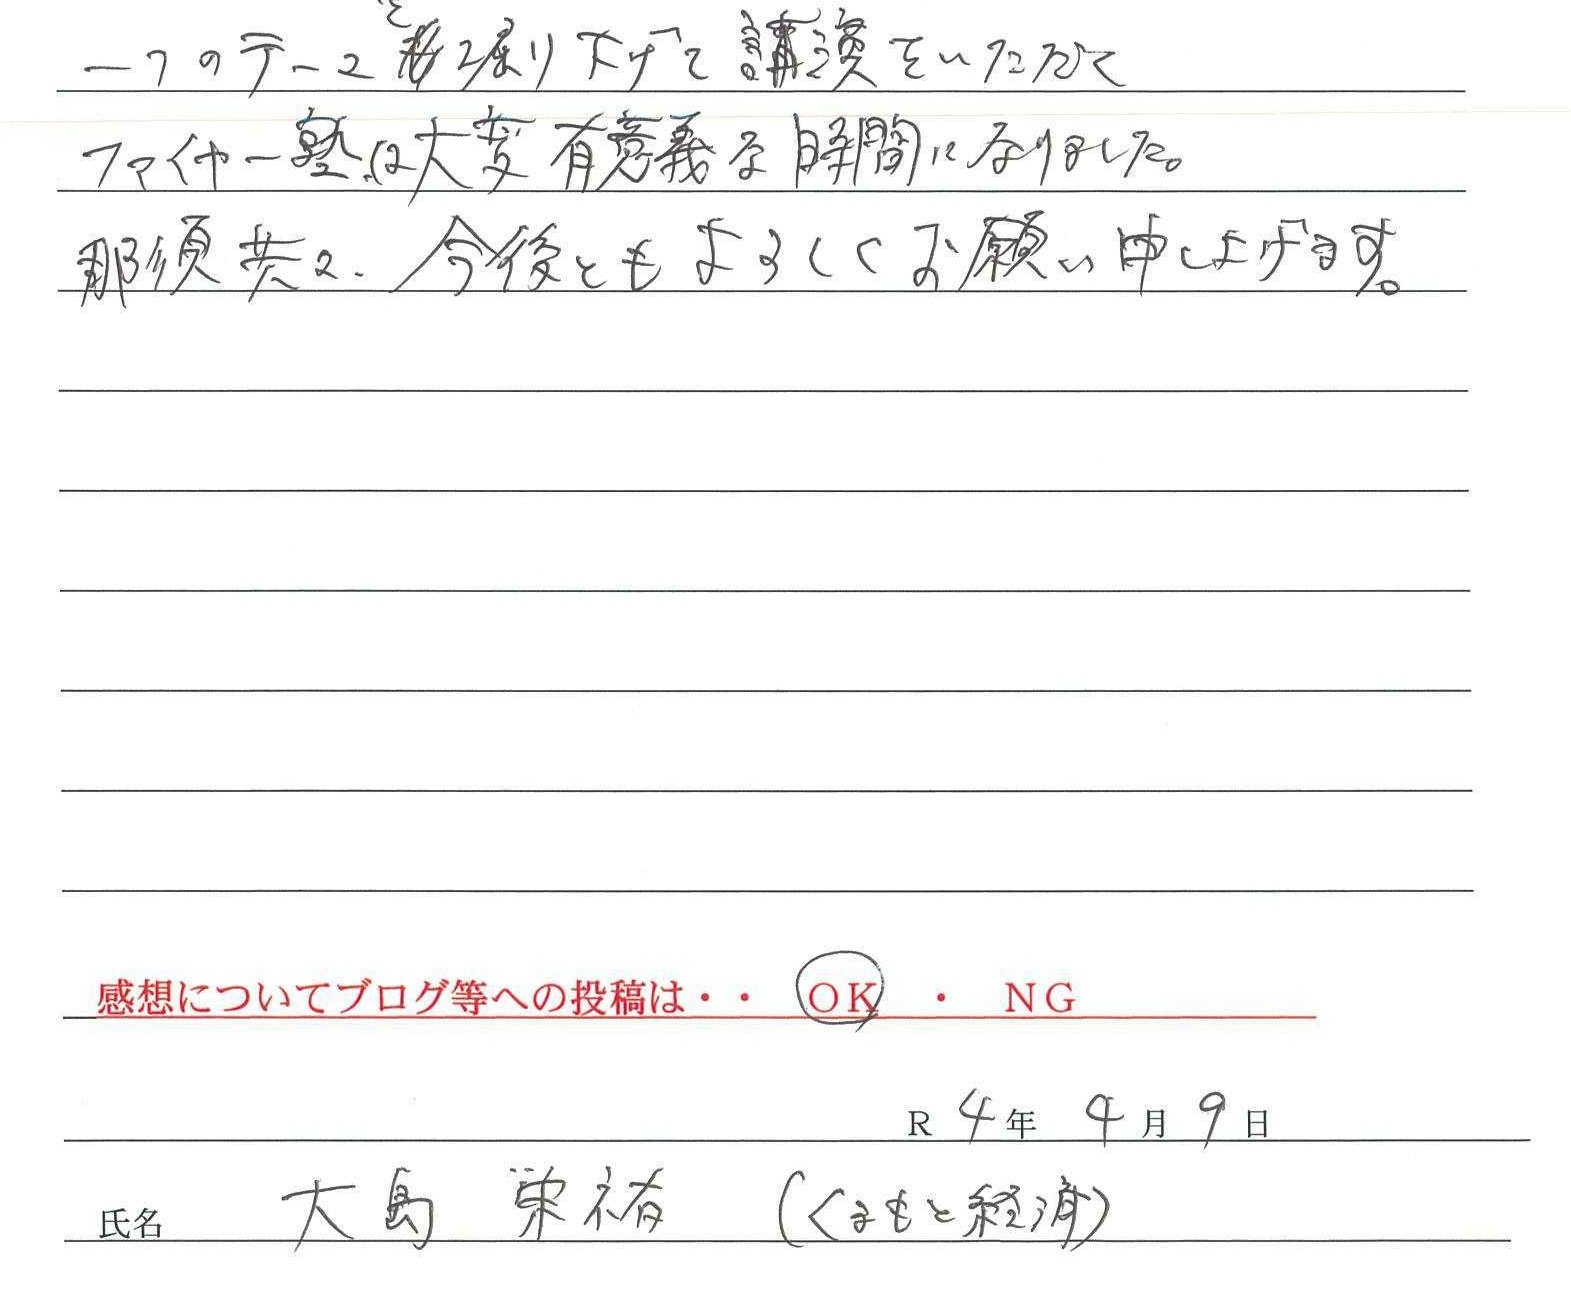 一つのテーマを掘り下げて講演をいただいて
ファイヤー塾は大変有意義な時間になりました。
那須共々、今後ともよろしくお願い申し上げます。
感想についてブログ等への投稿は・・ OK ・ NG
R 4年 4月 9日
氏名 大島 栄祐 (くまもと経済)